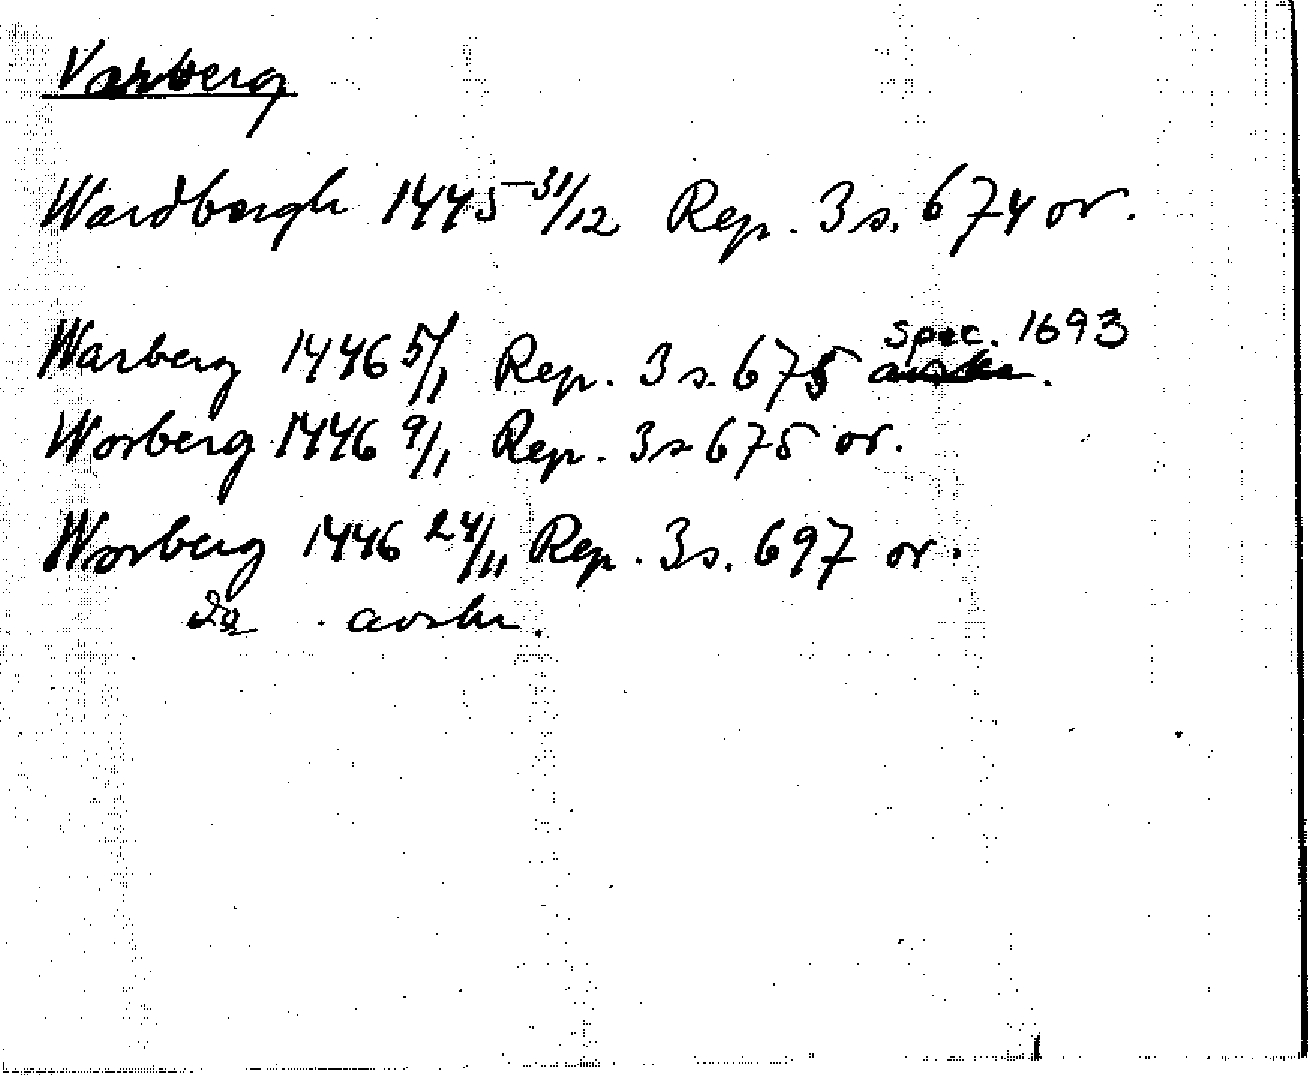 Varberg
Wardbergh 1445 31/12 Rep. 3 s. 674 or.
Warberg 1446 5/1 Rep. 3 s. 675 spec. 1693
Worberg 1446 9/1 Rep. 3 s 675 or.
Worberg 1446 24/11 Rep. 3 s. 697 or.
avskr.